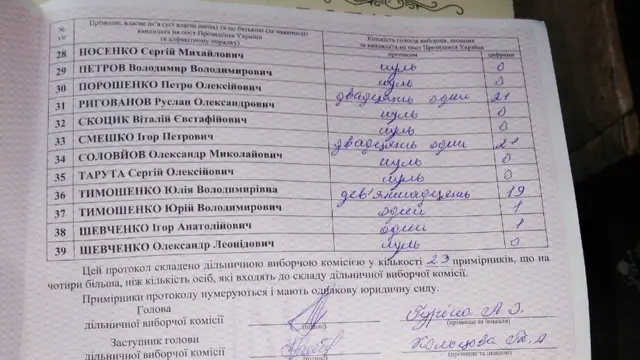 № з/п Прізвище, власне ім'я (усі власні імена) та по батькові (за наявності) кандидата на пост Президента України (в алфавітному порядку)
Кількість голосів виборців, поданих за кандидата на пост Президента України
прописом цифрами
28 НОСЕНКО Сергій Михайлович нуль 0
29 ПЕТРОВ Володимир Володимирович нуль 0
30 ПОРОШЕНКО Петро Олексійович двадцять один 21
31 РИГОВАНОВ Руслан Олександрович нуль 0
32 СКОЦИК Віталій Євстафійович нуль 0
33 СМЕШКО Ігор Петрович двадцять один 21
34 СОЛОВЙОВ Олександр Миколайович нуль 0
35 ТАРУТА Сергій Олексійович нуль 0
36 ТИМОШЕНКО Юлія Володимирівна дев'ятнадцять 19
37 ТИМОШЕНКО Юрій Володимирович один 1
38 ШЕВЧЕНКО Ігор Анатолійович один 1
39 ШЕВЧЕНКО Олександр Леонідович нуль 0
Цей протокол складено дільничною виборчою комісією у кількості 23 примірників, що на
чотири більша, ніж кількість осіб, які входять до складу дільничної виборчої комісії.
Примірники протоколу нумеруються і мають однакову юридичну силу.
Голова
дільничної виборчої комісії
(підпис) (прізвище та ініціали)
Заступник голови
дільничної виборчої комісії
(підпис) (прізвище та ініціали)